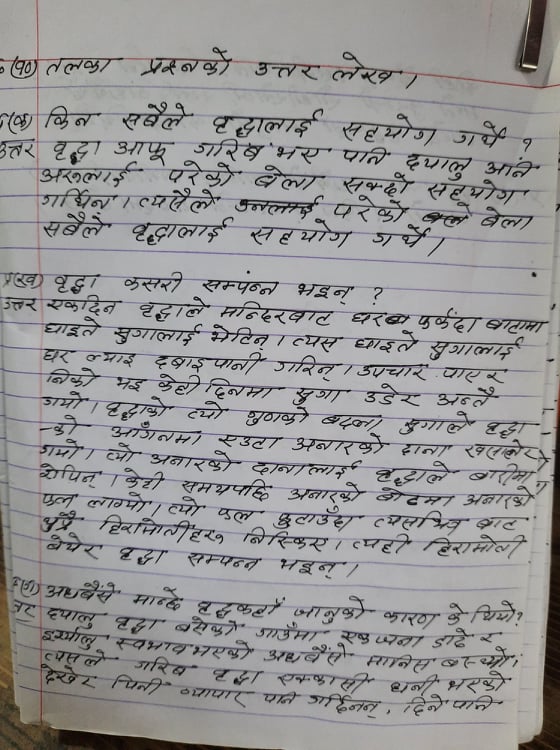 (१०) तलका प्रश्नको उत्तर लेख।
(क) किन सबैले वृद्धालाई सहयोग गर्थे ?
उत्तर वृद्धा आफू गरिब भए पनि दयालु थिइन्
अरुलाई परेको बेला सक्दो सहयोग
गर्थिन। त्यसैले उनलाई परेको बेला
सबैले वृद्धालाई सहयोग गर्थे।
प्र(ख) वृद्धा कसरी सम्पन्न भइन् ?
उत्तर एकदिन वृद्धाले मन्दिरबाट घर फर्कंदा बाटामा
घाइते सुगालाई भेटिन्। त्यस घाइते सुगालाई
घर ल्याइ दबाइपानी गरिन्। उपचार पाएर
निको भई केही दिनमा सुगा उडेर अन्तै
गयो। वृद्धाको त्यो गुणको बदला सुगाले वृद्धा
-को आँगनमा एउटा अनारको दाना खसालेर
गयो। त्यो अनारको दानालाई वृद्धाले बारीमा
रोपिन्। केही समयपछि अनारको बोटमा अनारको
फल लाग्यो। त्यो फल फुटाउँदा त्यसभित्र बाट
पुरै हिरामोतीहरु निस्किए। त्यही हिरामोती
बेचेर वृद्धा सम्पन्न भइन्।
(ग) अधबैंसे मान्छे वृद्धकहाँ जानुको कारण के थियो?
दयालु वृद्धा बसेको गाउँमा एकजना डाहे र
इर्ष्यालु स्वभाव भएको अधबैंसे मानिस बस्थ्यो।
त्यसले गरिब वृद्धा एक्कासी धनी भएको
देखेर चिनी व्यापार पनि गर्दिनन्, दिने पनि